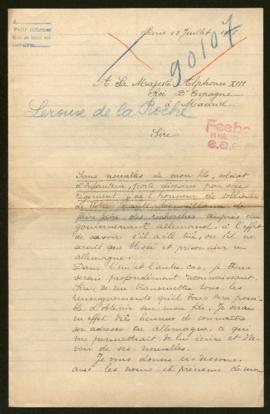 Paris 13 Juillet
90107
A Sa Majesté Alphonse XIII
Roi d'Espagne
à Madrid
Leroux de la Roche
Sire
Fecha
Sans nouvelles de mon fils, soldat
d'Infanterie, porté disparu par son
régiment, j'ai l'honneur de solliciter
de Votre
faire faire des recherches auprès du
gouvernement allemand, à l'effet
de savoir s'il a été tué, ou s'il ne
serait que blessé et prisonnier en
allemagne.
Dans l'un et l'autre cas, je vous
serais profondément reconnaissant,
Sire, de me transmettre tous les
renseignements qu'il vous sera possi-
ble d'obtenir sur mon fils. Je serais
en effet très heureux de connaître
son adresse en allemagne, ce qui
me permettrait de lui écrire et d'a-
voir de ses nouvelles.
Je vous donne ci-dessous,
les noms et prénoms de mon